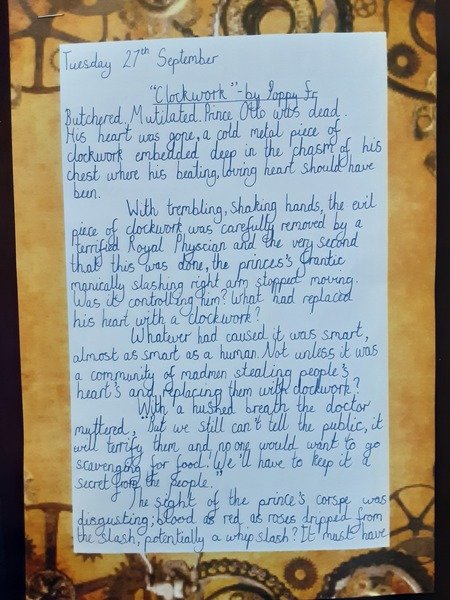 Tuesday 27th September
"Clockwork" - by Poppy Fr
Butchered. Mutilated. Prince Otto was dead.
His heart was gone, a cold metal piece of
clockwork embedded deep in the chasm of his
chest where his beating, loving heart should have
been.
With trembling, shaking hands, the evil
piece of clockwork was carefully removed by a
terrified Royal Physcian and the very second
that this was done, the princes's frantic
manically slashing right arm stopped moving.
Was it controlling him? What had replaced
his heart with a clockwork?
Whatever had caused it was smart,
almost as smart as a human. Not unless it was
a community of madmen stealing people's
heart's and replacing them with clockwork?
With a hushed breath the doctor
muttered, "But we still can't tell the public, it
will terrify them and no one would want to go
scavenging for food. We'll have to keep it a
secret from the people."
The sight of the prince's corspe was
disgusting; blood as red as roses dripped from
the slash, potentially a whip slash? It must have